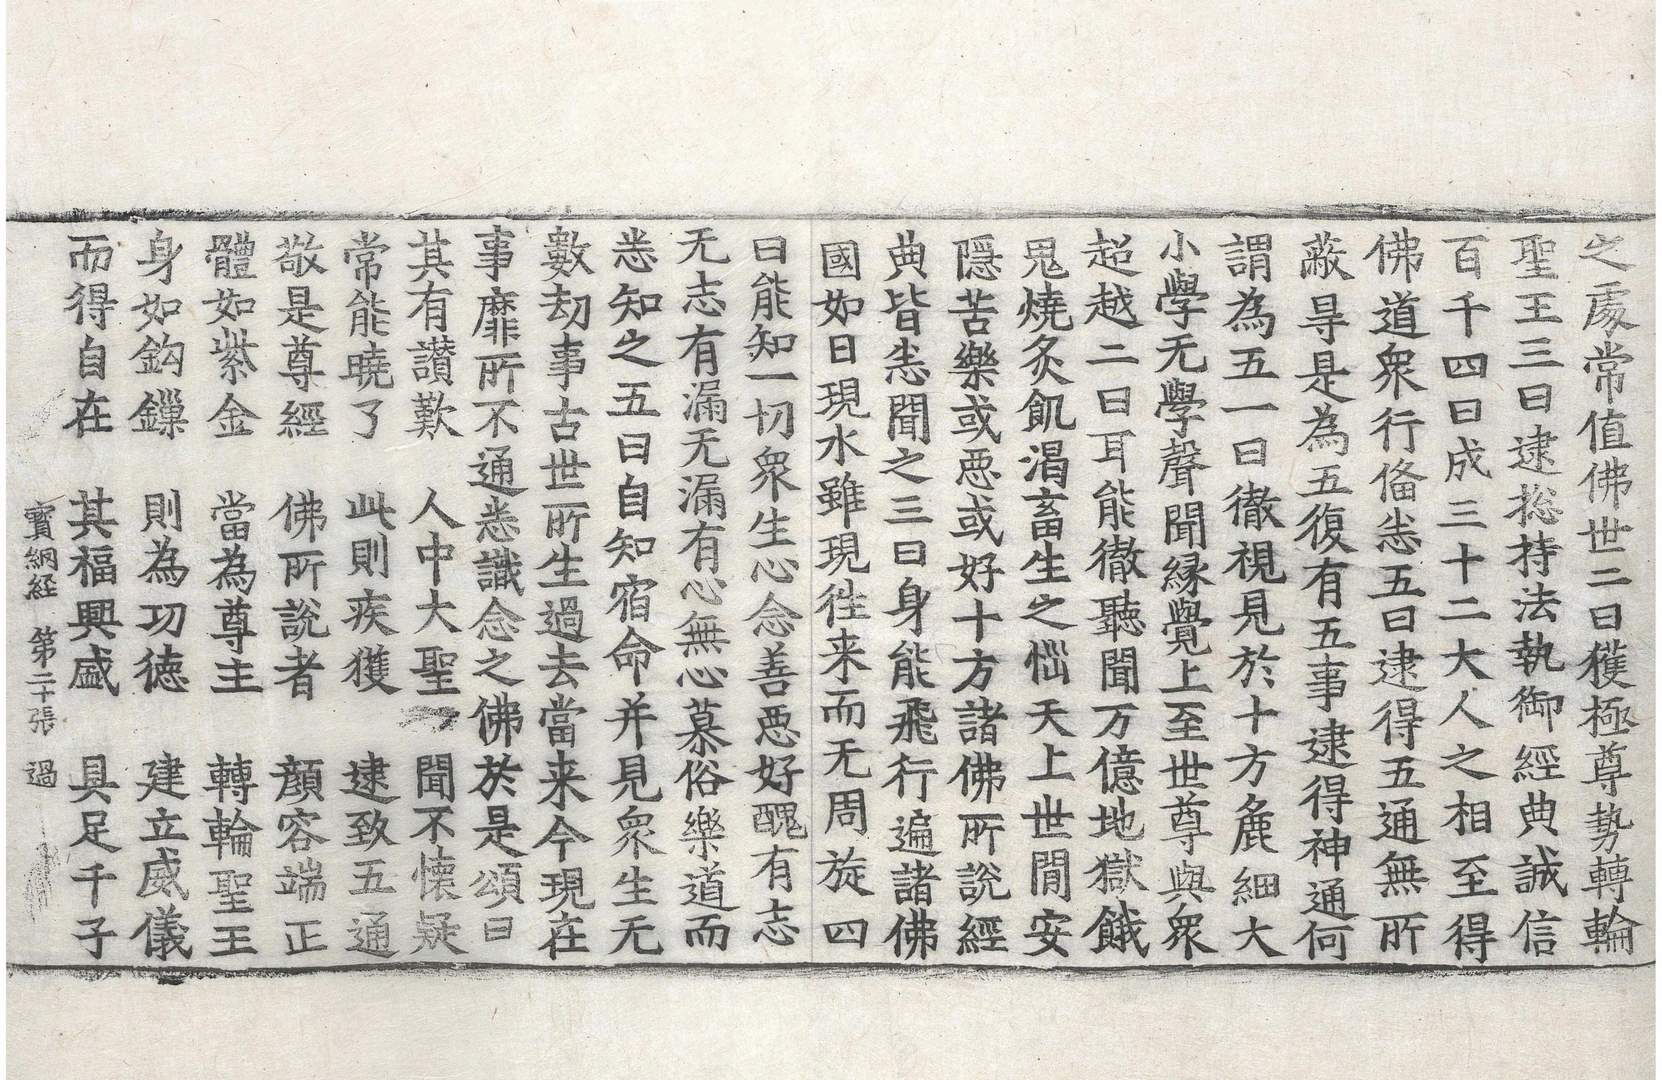 之處常值佛世二曰獲極尊勢轉輪
聖王三曰逮捴持法執御經典誠信
百千四曰成三十二大人之相至得
佛道衆行俻悉五曰逮得五通無所
蔽㝵是為五復有五事逮得神通何
謂為五一曰徹視見於十方麁細大
小學无學聲聞縁覺上至世尊與衆
超越二曰耳能徹聽聞万億地獄餓
鬼燒炙飢渴畜生之惱天上世間安
隱苦樂或惡或好十方諸佛所說經
典皆悉聞之三曰身能飛行遍諸佛
國如日現水雖現徃来而无周旋四
曰能知一切衆生心念善惡好醜有志
无志有漏无漏有心無心慕俗樂道而
悉知之五曰自知宿命并見衆生无
數劫事古世所生過去當来今現在
事靡所不通悉識念之佛於是頌曰
其有讃歎 人中大聖 聞不懷疑
常能曉了 此則疾獲 逮致五通
敬是尊經 佛所說者 顏容端正
體如紫金 當為尊主 轉輪聖王
身如鈎鏁 則為功德 建立威儀
而得自在 其福興盛 具足千子
寶網経 第二十張 過